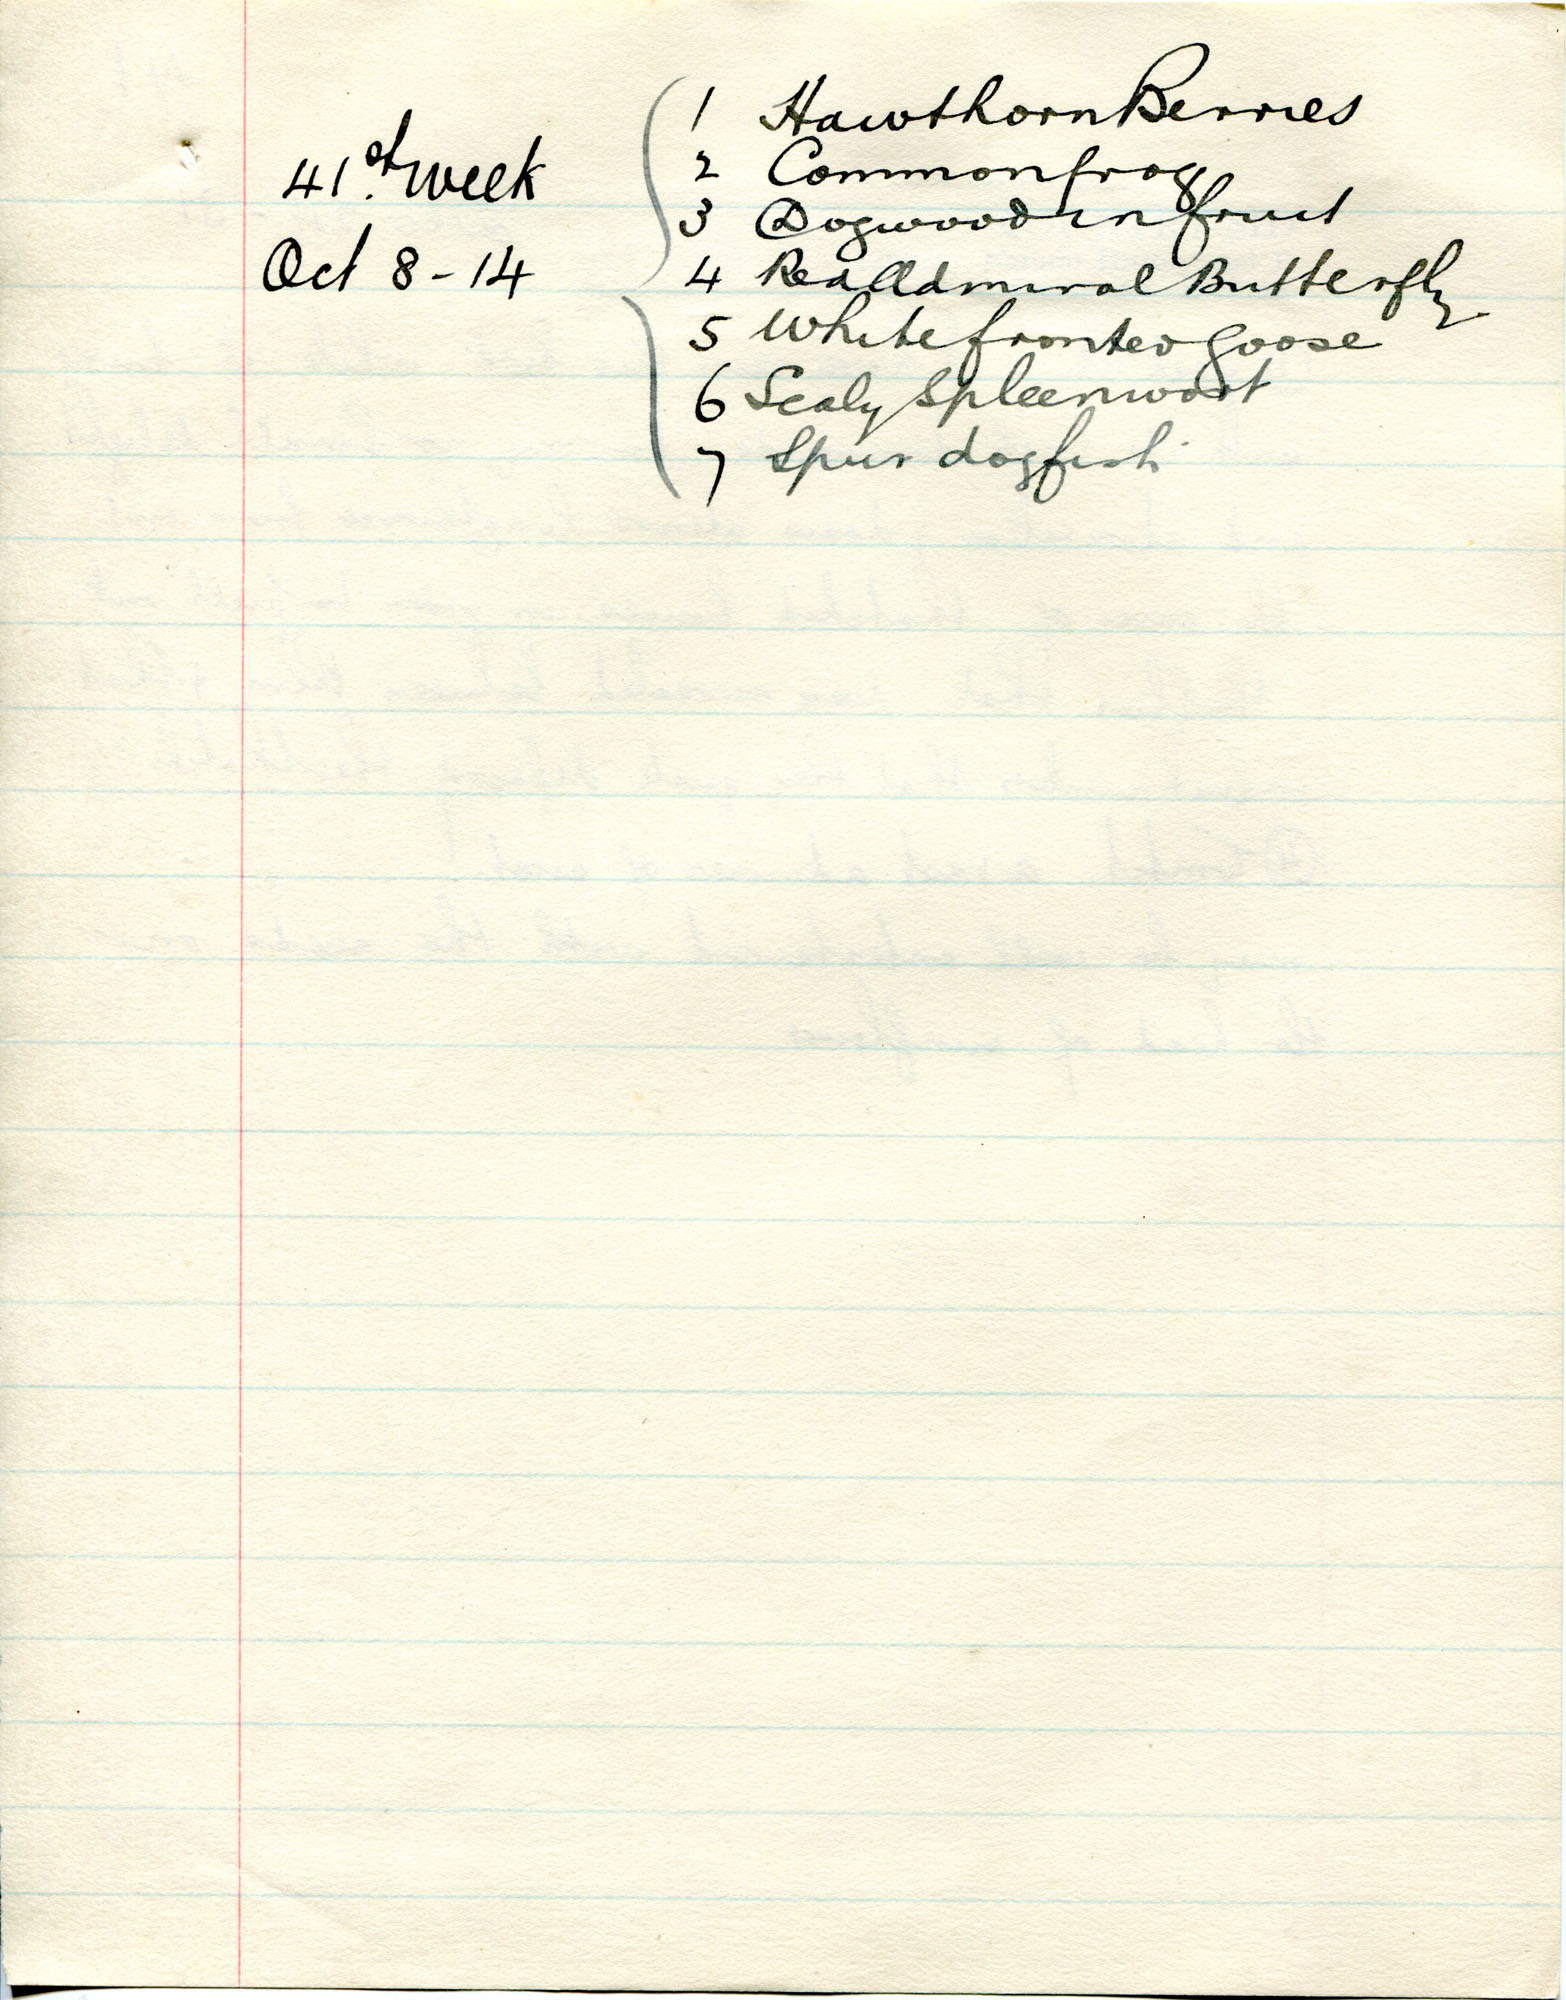 41st week
Oct 8-14
1 Hawthorn Berries
2 Common frog
3 Dogwood in fruit
4 Red Admiral Butterfly
5 White fronted goose
6 Scaly Spleenwort
7 Spur dogfish